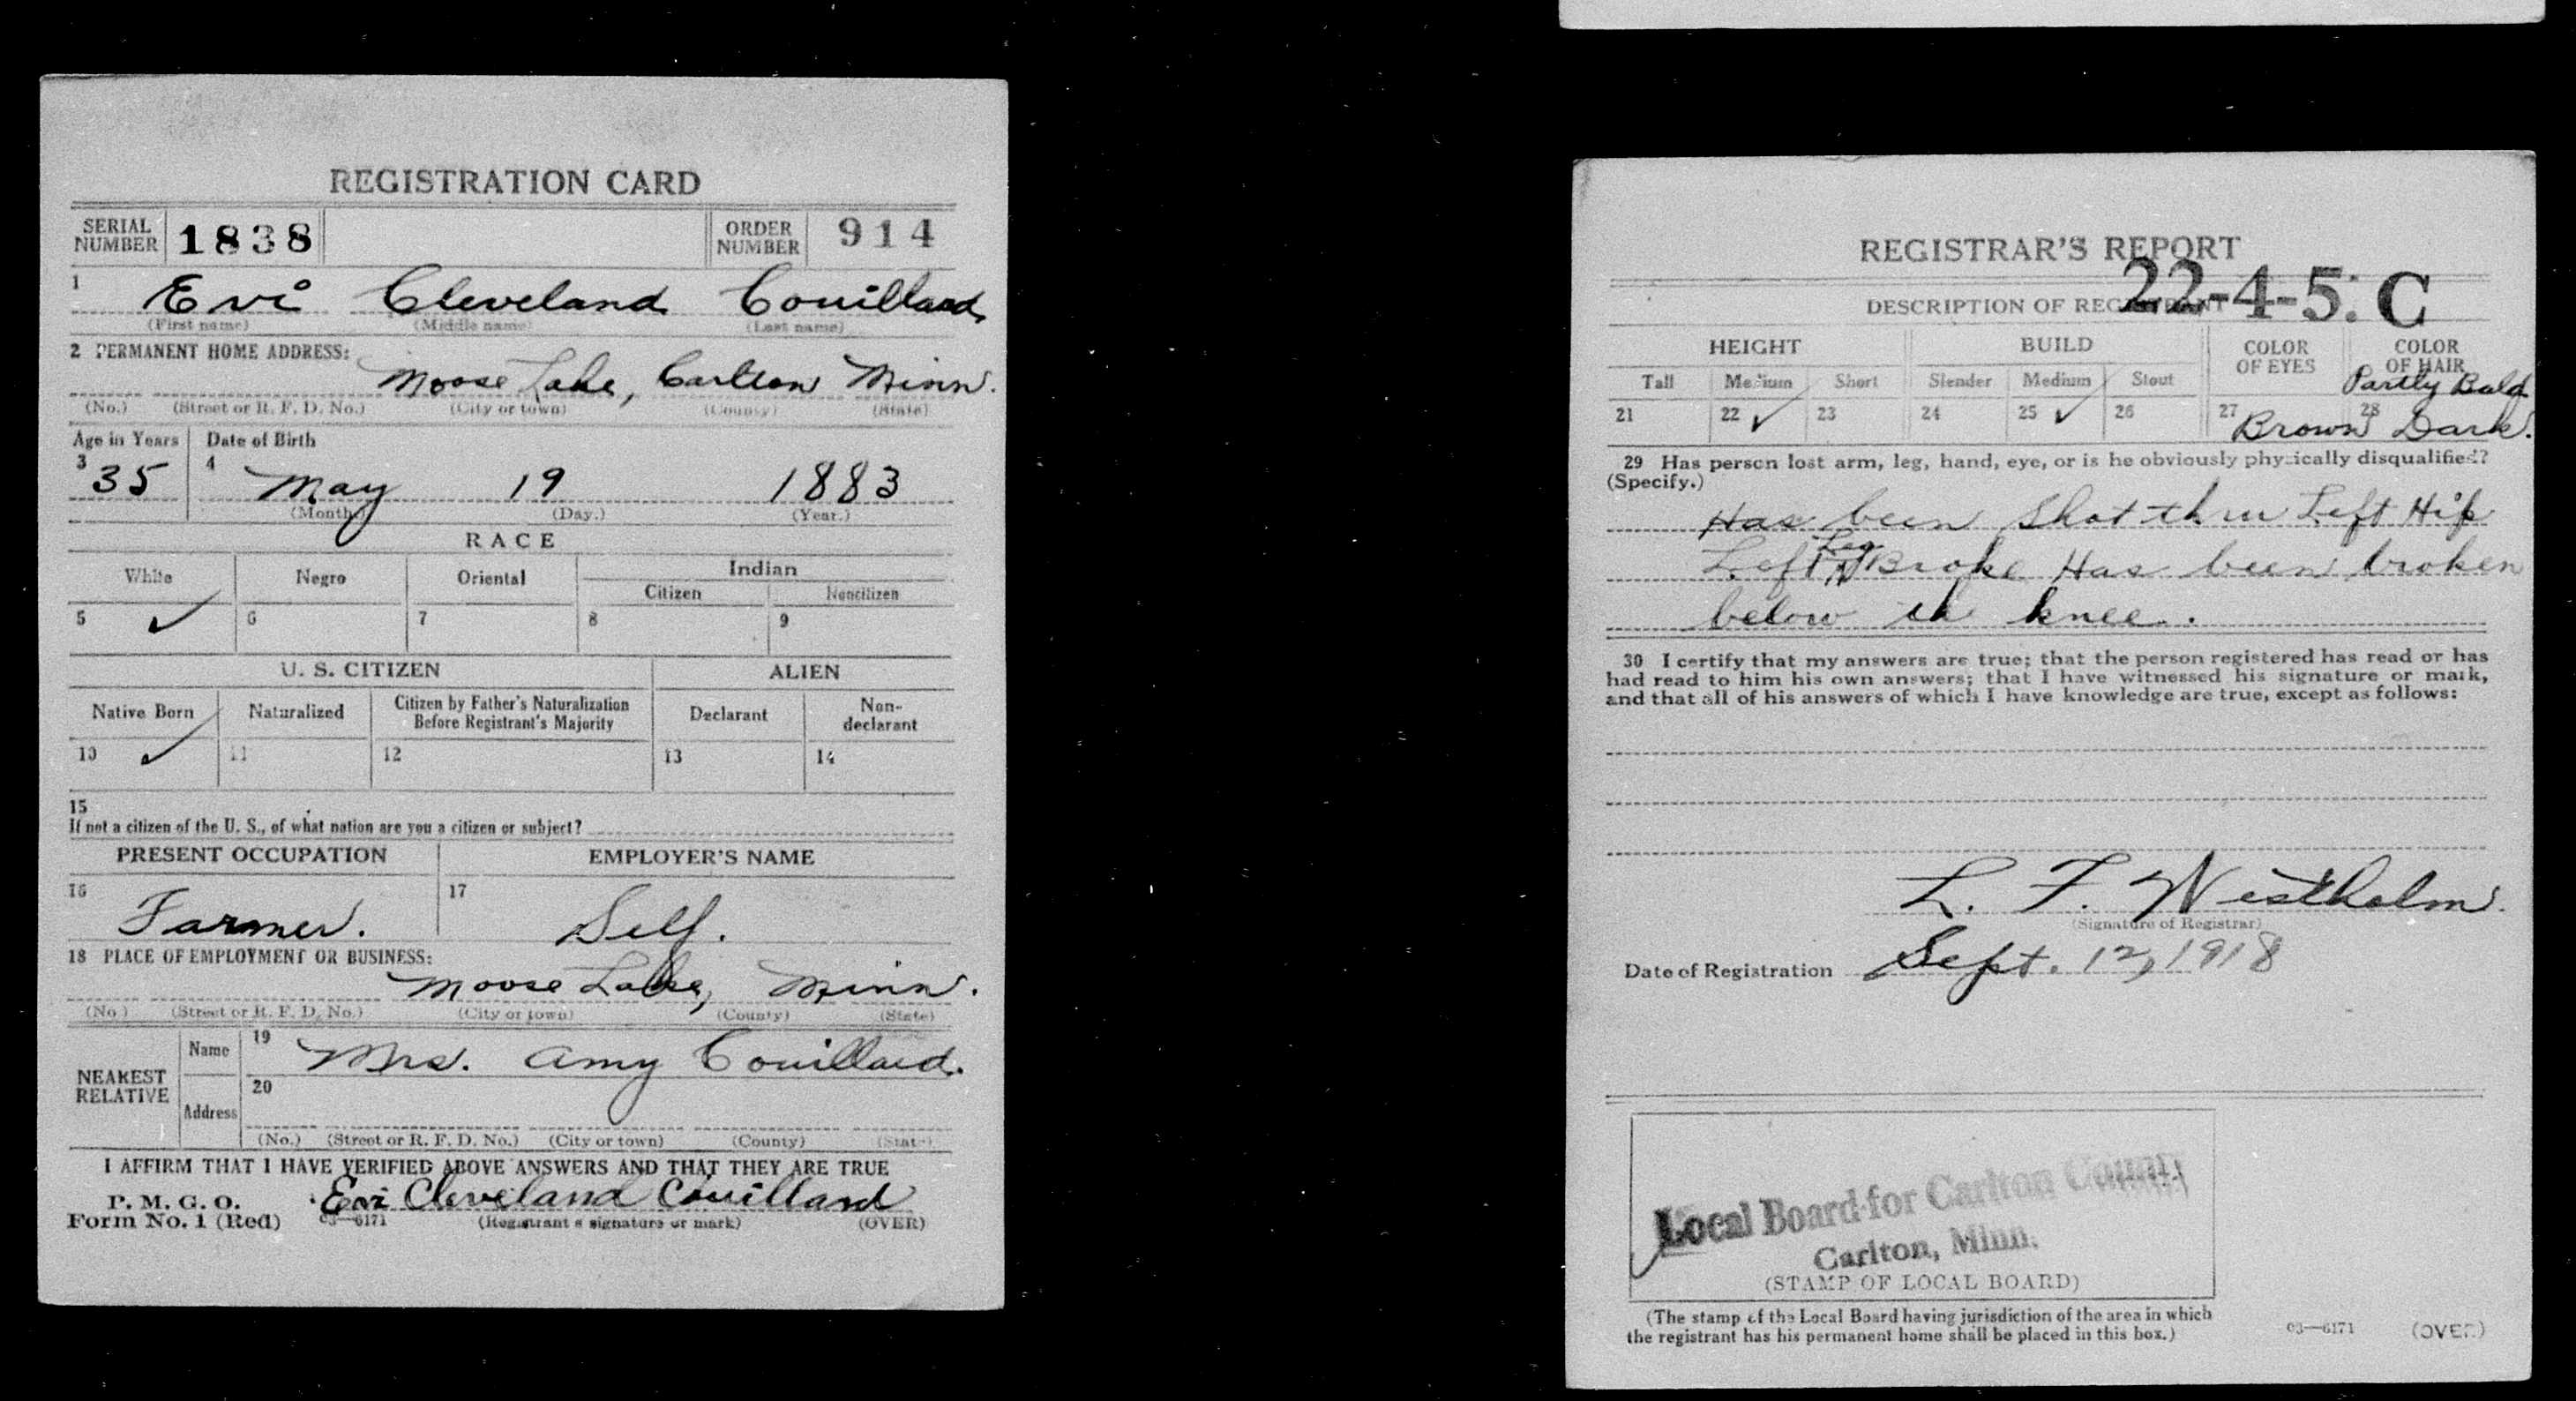 REGISTRATION CARD
SERIAL NUMBER 1838 ORDER NUMBER 914
1 Evi Cleveland Couillard
(First name) (Middle name) (Last name)
2 PERMANENT HOME ADDRESS:
Moose Lake, Carlton Minn.
(No.) (Street or R. F. D. No.) (City or town) (County) (State)
Age in Years Date of Birth
3 35 4 May 19 1883
(Month.) (Day.) (Year.)
RACE
White Negro Oriental Indian
Citizen Noncitizen
5 ✓ 6 7 8 9
U. S. CITIZEN ALIEN
Native Born Naturalized Citizen by Father's Naturalization Before Registrant's Majority Declarant Non-declarant
10 ✓ 11 12 13 14
15
If not a citizen of the U. S., of what nation are you a citizen or subject?
PRESENT OCCUPATION EMPLOYER'S NAME
16 Farmer. 17 Self.
18 PLACE OF EMPLOYMENT OR BUSINESS:
Moose Lake, Minn.
(No.) (Street or R. F. D. No.) (City or town) (County) (State)
NEAREST RELATIVE Name 19 Mrs. Amy Couillard.
Address 20
(No.) (Street or R. F. D. No.) (City or town) (County) (State)
I AFFIRM THAT I HAVE VERIFIED ABOVE ANSWERS AND THAT THEY ARE TRUE
P. M. G. O.
Form No. 1 (Red) 03—6171 Evi Cleveland Couillard
(Registrant's signature or mark) (OVER)
REGISTRAR'S REPORT
22-4-5. C
DESCRIPTION OF REGISTRANT
HEIGHT BUILD COLOR OF EYES COLOR OF HAIR
Tall Medium Short Slender Medium Stout Partly Bald
21 22 ✓ 23 24 25 ✓ 26 27 Brown 28 Dark.
29 Has person lost arm, leg, hand, eye, or is he obviously physically disqualified?
(Specify.)
Has been Shot thru Left Hip
Left Leg Broke Has been broken
below th knee.
30 I certify that my answers are true; that the person registered has read or has
had read to him his own answers; that I have witnessed his signature or mark,
and that all of his answers of which I have knowledge are true, except as follows:
L. F. Westholm.
(Signature of Registrar)
Date of Registration Sept. 12, 1918
Local Board for Carlton County
Carlton, Minn.
(STAMP OF LOCAL BOARD)
(The stamp of the Local Board having jurisdiction of the area in which
the registrant has his permanent home shall be placed in this box.)
03—6171 (OVER)